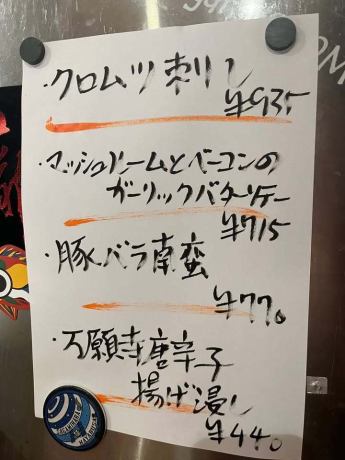 ・クロムツ刺し
¥935
・マッシュルームとベーコンの
ガーリックバターソテー
¥715
・豚バラ南蛮
¥770
・万願寺唐辛子
揚げ浸し
¥440